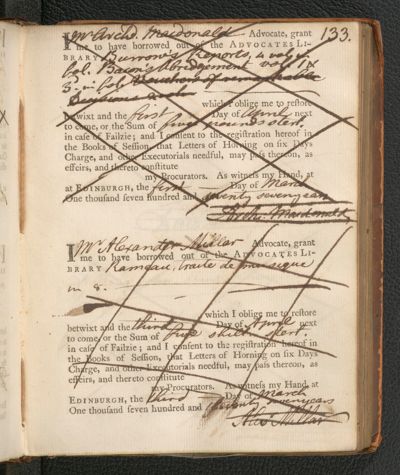 133.
I Mr Archd. Macdonald Advocate, grant
me to have borrowed out of the ADVOCATES LI-
BRARY Burrow's Reports, 4 vol.
fol. Bacon's Abridgement vol. 1
3. in fol. Decisions
which I oblige me to restore
betwixt and the first Day of April next
to come, or the Sum of five pounds sterl.
in case of Failzie; and I consent to the registration hereof in
the Books of Session, that Letters of Horning on six Days
Charge, and other Executorials needful, may pass thereon, as
effeirs, and thereto constitute
my Procurators. As witness my Hand, at
at EDINBURGH, the first Day of March
One thousand seven hundred and seventy seven years
Archd. Macdonald
I Mr Alexander Millar Advocate, grant
me to have borrowed out of the ADVOCATES LI-
BRARY Rameau, traite de musique
in 8.
which I oblige me to restore
betwixt and the third Day of April next
to come, or the Sum of five shill. sterl.
in case of Failzie; and I consent to the registration hereof in
the Books of Session, that Letters of Horning on six Days
Charge, and other Executorials needful, may pass thereon, as
effeirs, and thereto constitute
my Procurators. As witness my Hand, at
EDINBURGH, the third Day of March
One thousand seven hundred and seventy seven years
Alexr Millar